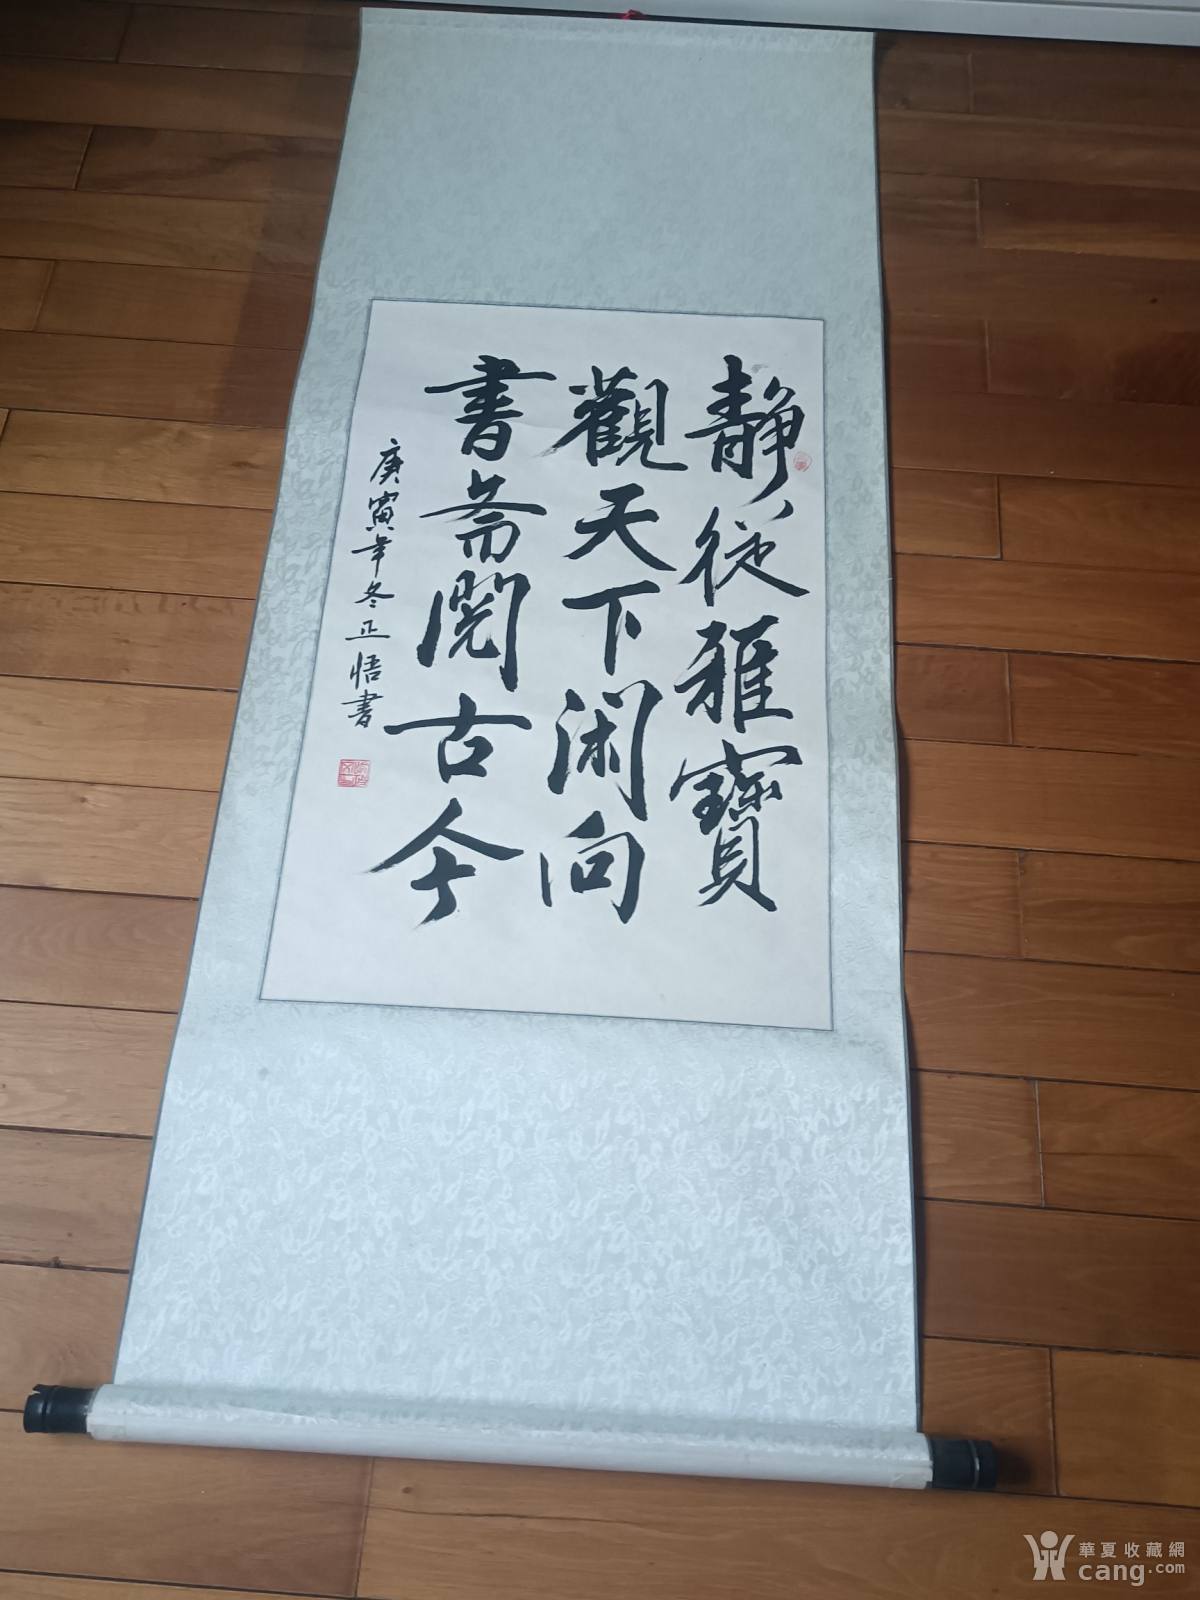 靜從雅寶
觀天下闲向
書斋閱古今
庚寅年冬正悟書
華夏收藏網
cang.com